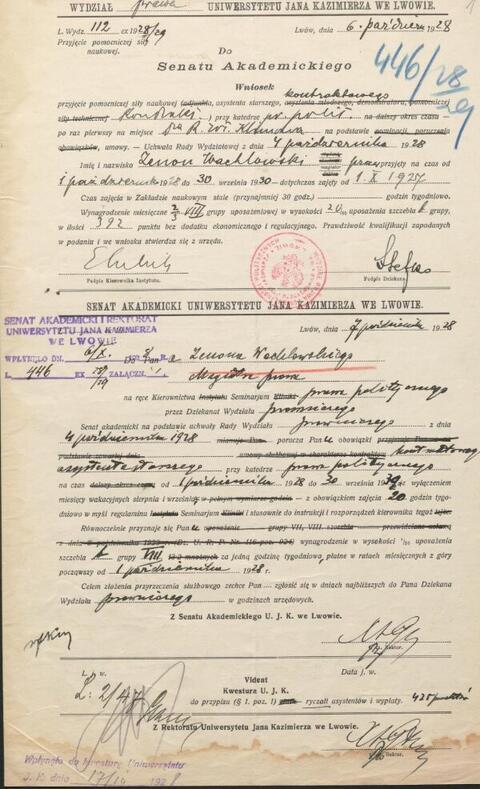 WYDZIAŁ prawa UNIWERSYTETU JANA KAZIMIERZA WE LWOWIE.
L. Wydz. 112 ex 1928/29 Lwów, 6. paździer. 1928
Przyjęcie pomocniczej siły
naukowej.
Do
Senatu Akademickiego
446/28/29
Wniosek
kontraktowego
przyjęcie pomocniczej siły naukowej (adjunkta, asystenta starszego, asystenta młodszego, demonstratora, pomocniczej
siły technicznej) przy katedrze pr. polit. na dalszy okres czasu —
po raz pierwszy na miejsce — na podstawie nominacji, poruczenia
obowiązków, umowy. — Uchwała Rady Wydziałowej z dnia 4 października 1928
Imię i nazwisko Zenon Wachlowski przyjąć na czas od
1 październik 1928 do 30 września 1930 — dotychczas zajęty od 1.X 1927
Czas zajęcia w Zakładzie naukowym stałe (przynajmniej 30 godz.) godzin tygodniowo.
Wynagrodzenie miesięczne 2/3 VIII grupy uposażeniowej w wysokości 20 uposażenia szczebla b grupy,
w ilości 392 punktu bez dodatku ekonomicznego i regulacyjnego. Prawdziwość kwalifikacji zapodanych
w podaniu i we wniosku stwierdza się z urzędu.
Podpis Kierownika Instytutu. Podpis Dziekana.
SENAT AKADEMICKI UNIWERSYTETU JANA KAZIMIERZA WE LWOWIE.
Lwów, dnia 7 październik 1928
SENAT AKADEMICKI I REKTORAT
UNIWERSYTETU JANA KAZIMIERZA
WE LWOWIE
WPŁYNĘŁO DN. 6/X. 192 8
L. 446 EX 28/29 ZAŁĄCZN. 1
Do Pana Zenona Wachlowskiego
Magistra praw
na ręce Kierownictwa Instytutu Seminarjum Kliniki prawa politycznego
przez Dziekanat Wydziału prawniczego
Senat akademicki na podstawie uchwały Rady Wydziału prawniczego z dnia
4 październiku 1928 mianuje Pana porucza Panu obowiązki kontraktowego
asystenta starszego przy katedrze prawa politycznego
na czas dalszy okres czasu od 1 październiku 1928 do 30 września 1930 z wyłączeniem
miesięcy wakacyjnych sierpnia i września w pełnym wymiarze godzin — z obowiązkiem zajęcia 20 godzin tygodniowo
w myśl regulaminu Instytutu Seminarium Kliniki i stosownie do instrukcji i rozporządzeń kierownika tegoż
Równocześnie przyznaje się Panu uposażenie grupy VII, VIII szczebla przewidziane ustawą
wynagrodzenie w wysokości uposażenia
szczebla b grupy VIII za jedną godzinę tygodniowo, płatne w ratach miesięcznych z góry
począwszy od 1 październiku 1928 r.
Celem złożenia przyrzeczenia służbowego zechce Pan zgłosić się w dniach najbliższych do Pana Dziekana
Wydziału prawniczego w godzinach urzędowych.
Z Senatu Akademickiego U. J. K. we Lwowie.
Rektor.
L. j. w. Data j. w.
L: 2/47
Videat
Kwestura U. J. K.
do przypisu (§ 1. poz. 1) ryczałt asystentów i wypłaty.
Z Rektoratu Uniwersytetu Jana Kazimierza we Lwowie.
Rektor.
Wpłynęło do kwestury Uniwersytetu
J. K. dnia 17/10 1928